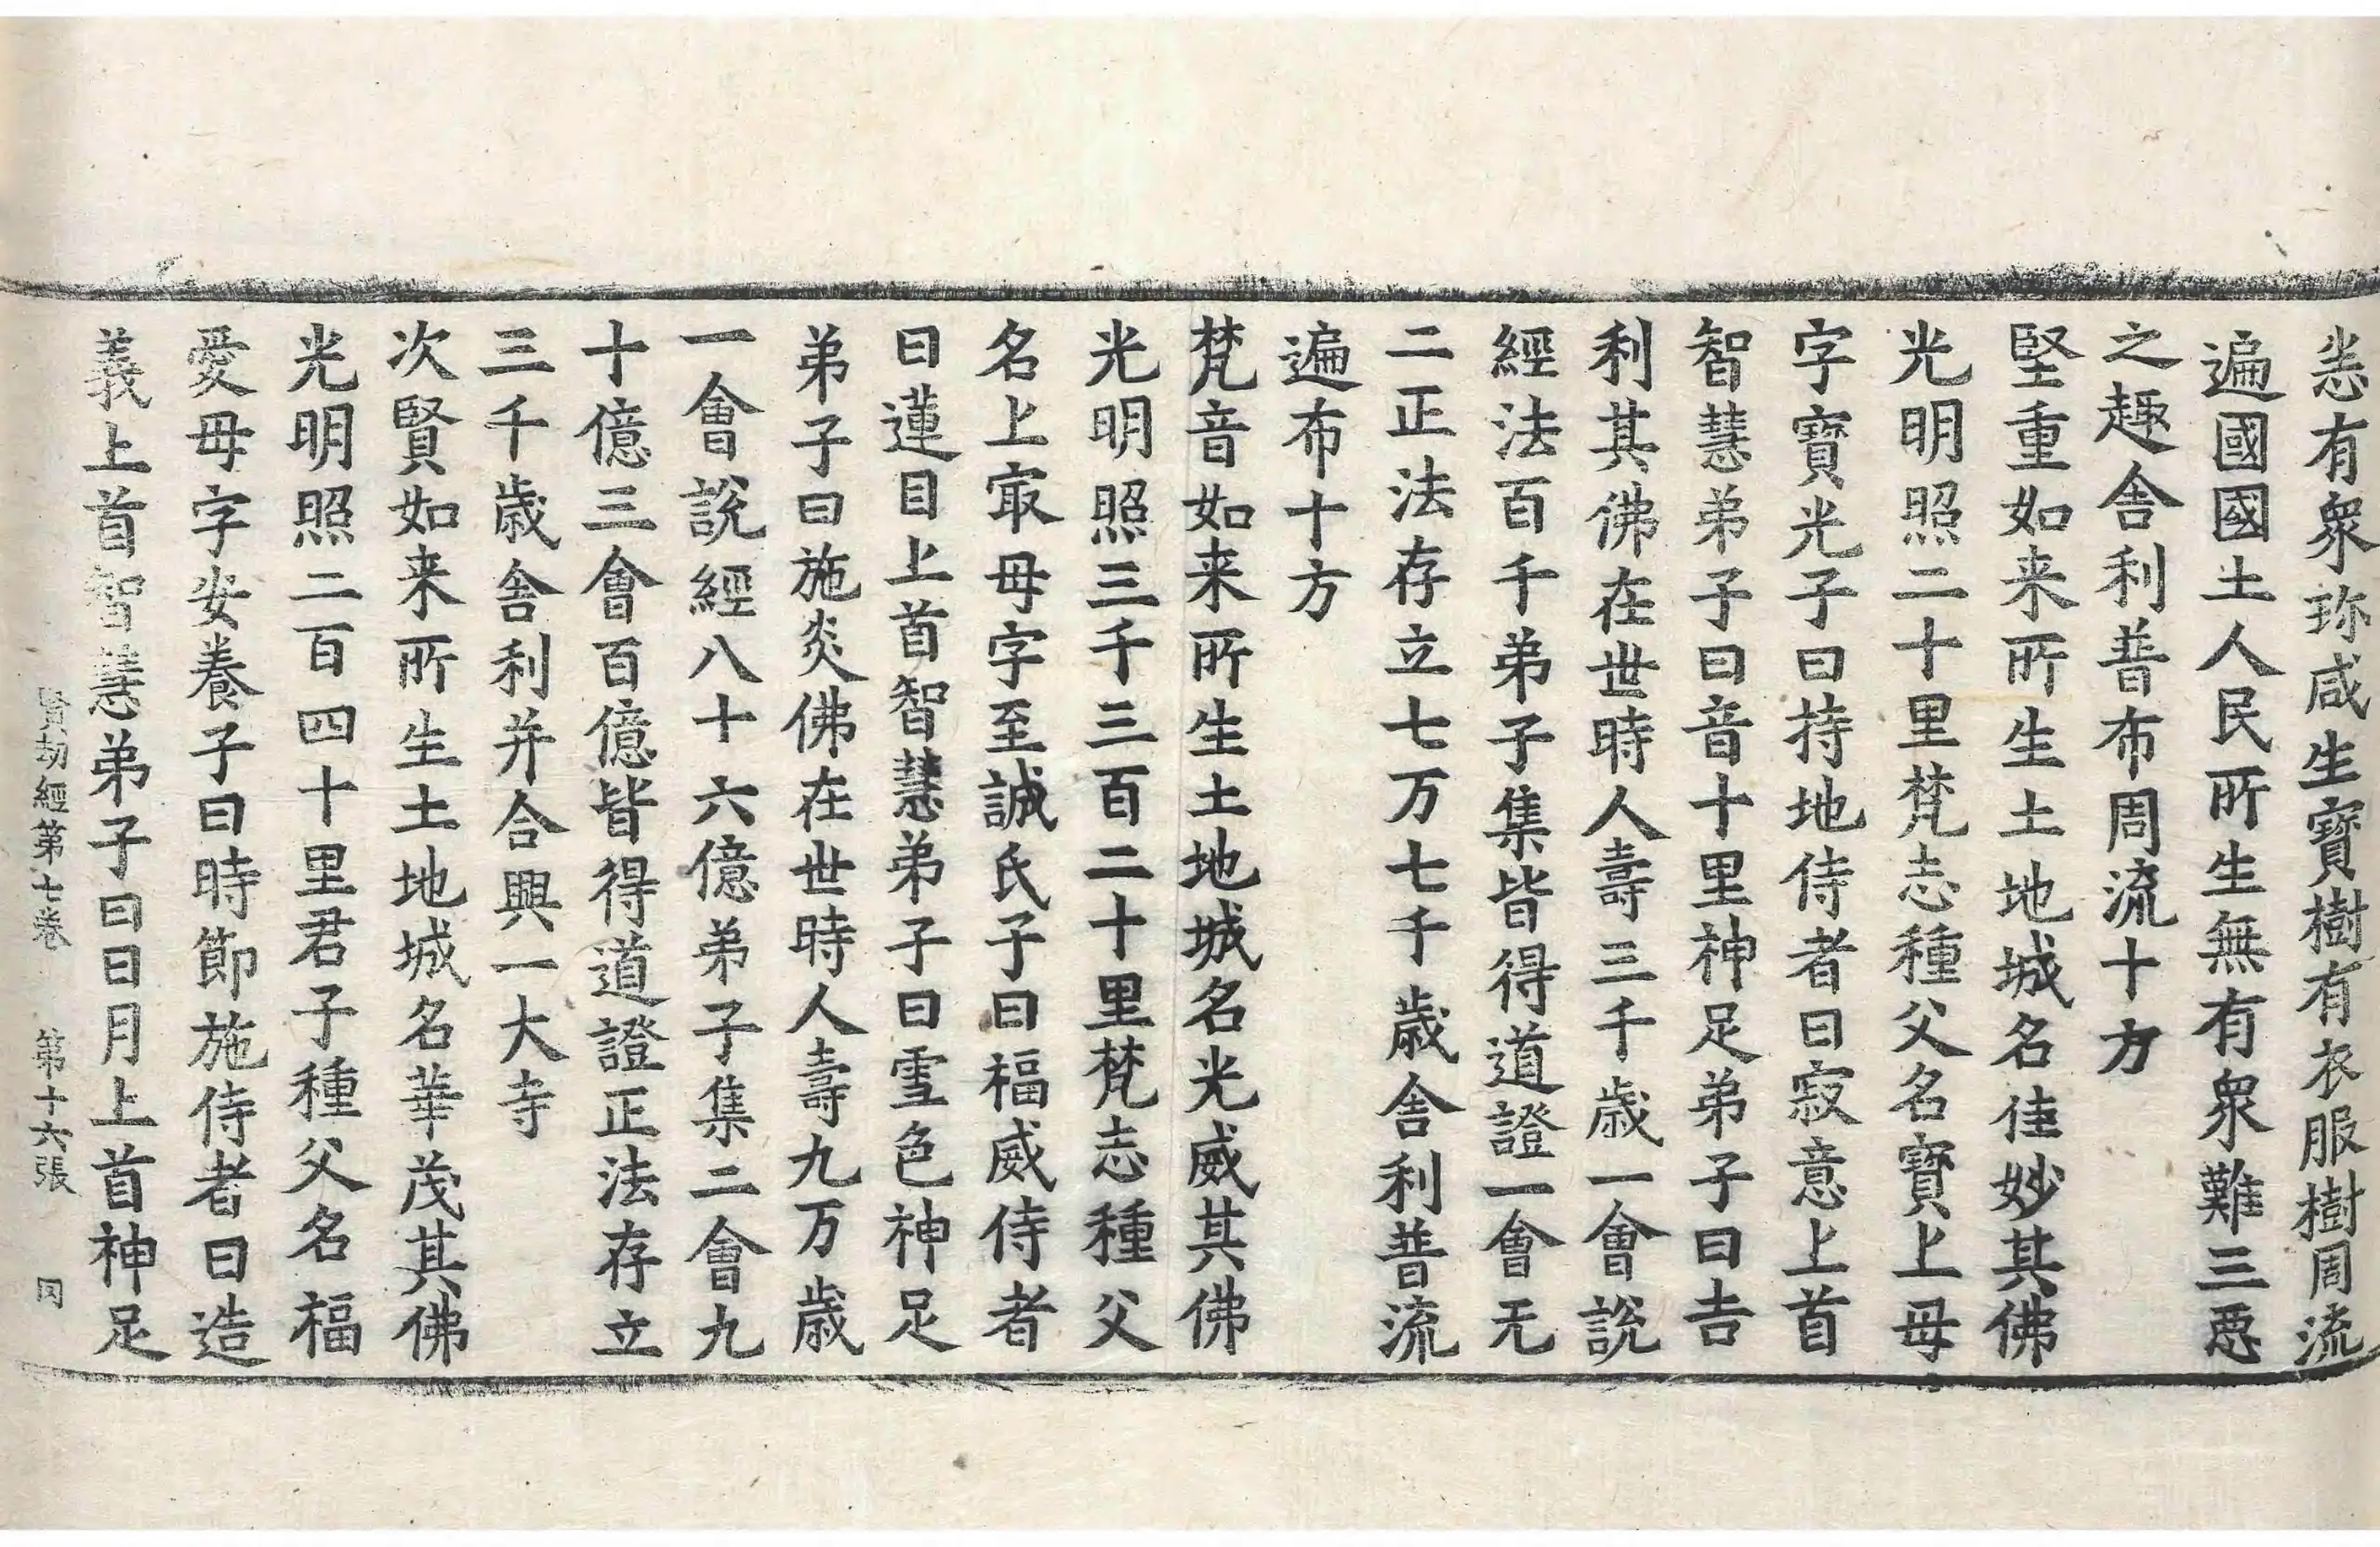 恙有衆珎咸生寶樹有衣服樹周流
遍國國土人民所生無有衆難三惡
之趣舎利普布周流十方
堅重如来所生土地城名佳妙其佛
光明照二十里梵志種父名寶上母
字寶光子曰持地侍者曰寂意上首
智慧弟子曰音十里神足弟子曰吉
利其佛在世時人壽三千歳一會說
經法百千弟子集皆得道證一會无
二正法存立七万七千歳舎利普流
遍布十方
梵音如来所生土地城名光威其佛
光明照三千三百二十里梵志種父
名上㝡母字至誠氏子曰福威侍者
曰蓮目上首智慧弟子曰雪色神足
弟子曰施炎佛在世時人壽九万歳
一會說經八十六億弟子集二會九
十億三會百億皆得道證正法存立
三千歳舎利并合興一大寺
次賢如来所生土地城名華茂其佛
光明照二百四十里君子種父名福
愛母字安養子曰時節施侍者曰造
義上首智慧弟子曰日月上首神足
賢劫經第七卷 第十六張 罔